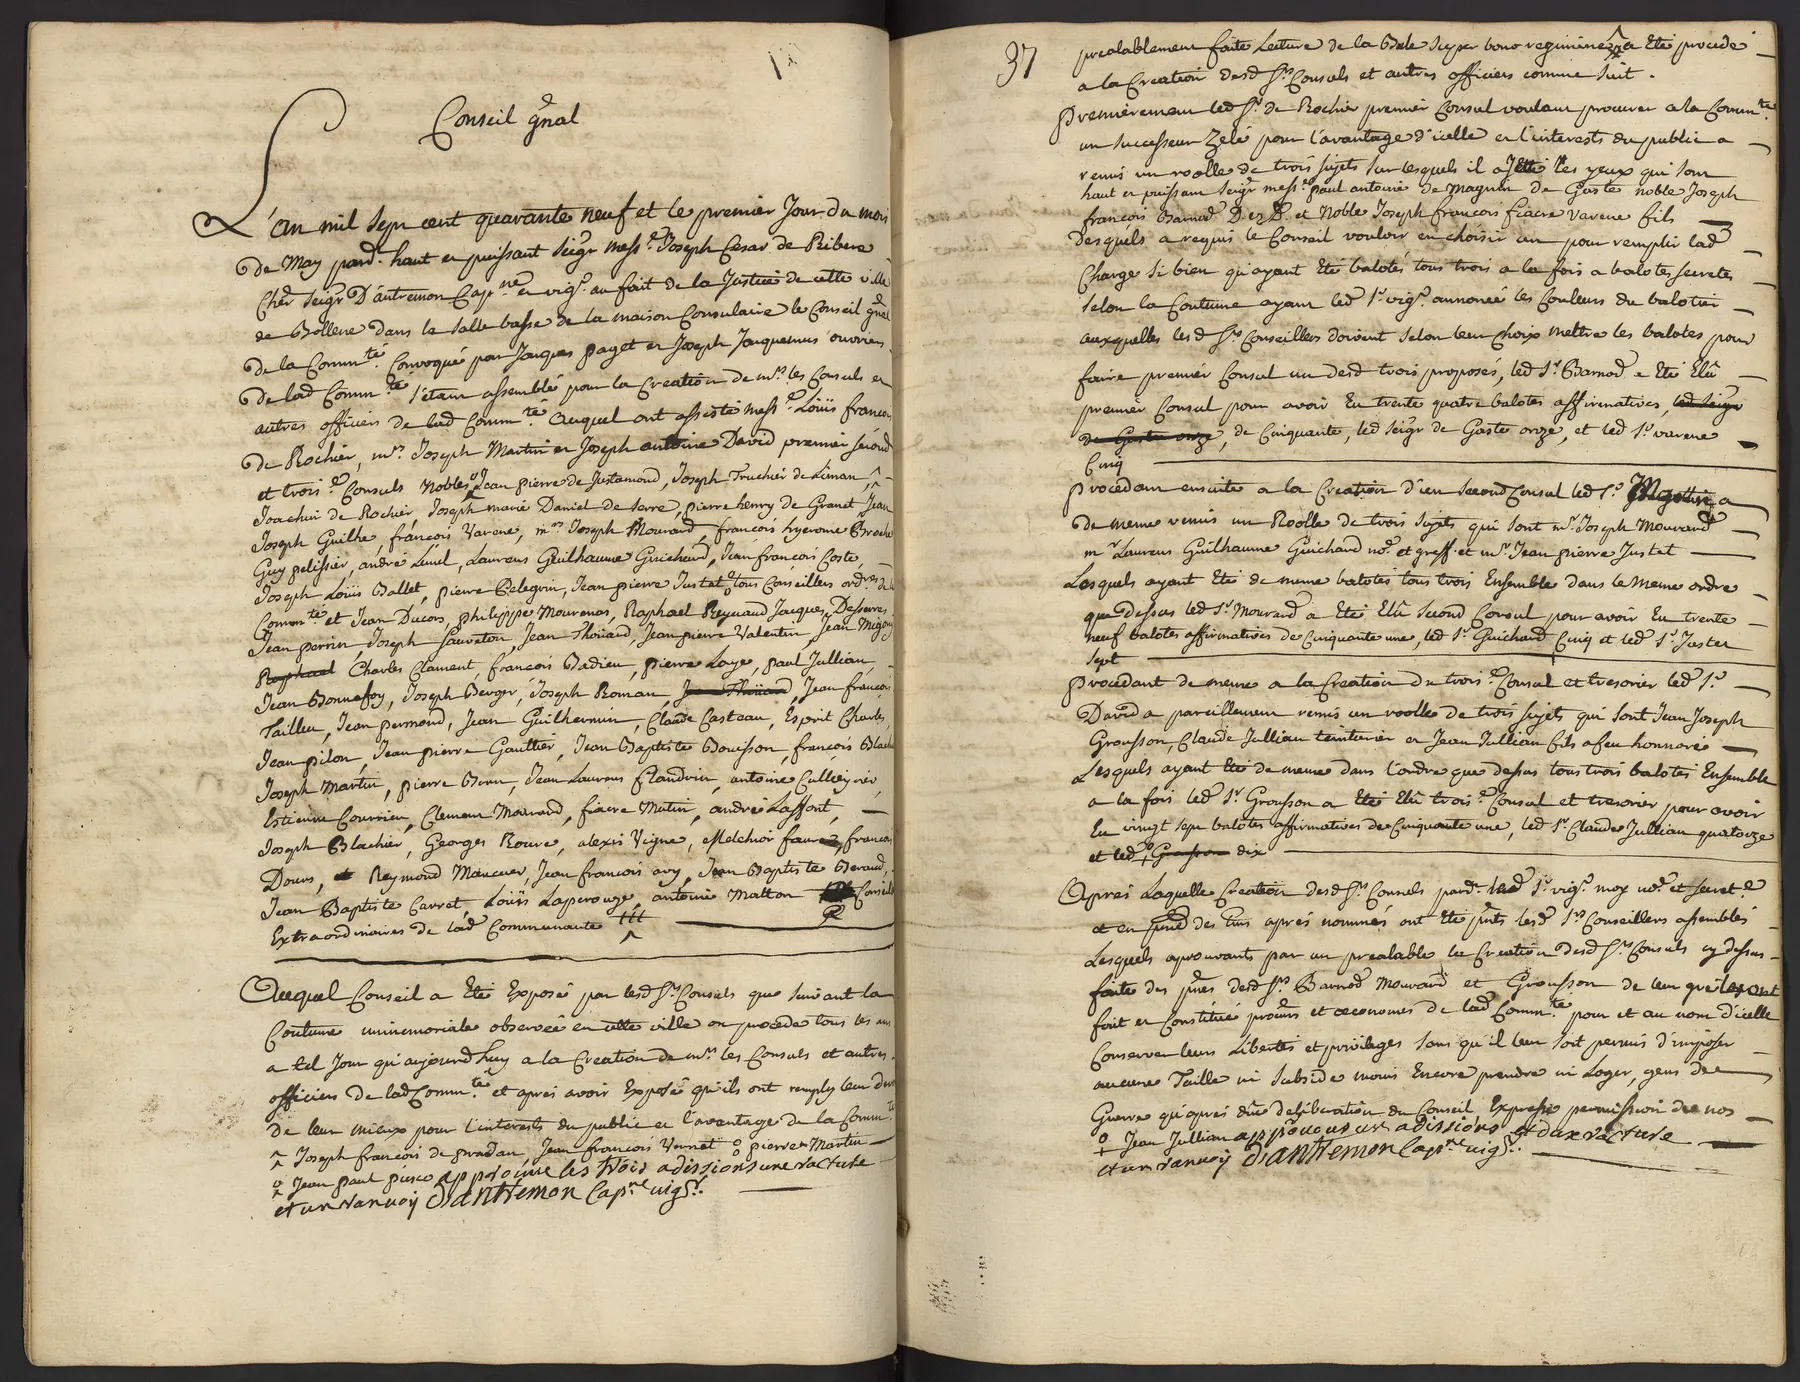 Conseil gñal
L'an mil sept cent quarante neuf et le premier Jour du mois
de May pard.t haut et puissant seigr mess.e Joseph Cesar de Ribere
Cher seigr D'antremon Cap.ne et vig.r au fait de la Justice de cette ville
de Bollene dans la salle basse de la maison Consulaire le Conseil gñal
de la Comm.té Convoqué par Jacques paget et Joseph Jacquemus
de lad Comm.té s'etant assemblé pour la Creation de mrs les Consuls et
autres officiers de lad Comm.té Auquel ont assisté mess.e Loüis francois
de Rochier, mrs Joseph Martin et Joseph antoine David premier second
et trois.e Consuls Nobles Jean pierre de Justamond, Joseph Truchier de Liman
Joachim de Rochier, Joseph marie Daniel de serre, pierre henry de Granet Jean
Joseph Guilhe francois Varene, mrs Joseph Mourard, francois hyerome
Guy pelissier, andré Linel, Laurens Guilhaume Guichard, Jean francois Coste,
Joseph Loüis Ballet, pierre Pelegrin, Jean pierre Justet tous Conseillers ordres de la
Comm.té et Jean Ducors, philippe Mourenas, Raphael Reynaud Jacques Desserres
Jean perrin, Joseph Sauveton, Jean Thoüard, Jean pierre Valentin, Jean
Raphael Charles Clament, francois Badieu, pierre Loye, paul Jullian,
Jean Bonnefoy, Joseph Berger, Joseph Roman, Jean Thoüard, Jean francois
Tailleu, Jean permond, Jean Guilhermin, Claude Casteau, Esprit Charles,
Jean pilon, Jean pierre Gaultier, Jean Baptiste Bouisson, francois
Joseph Martin, pierre Brun, Jean Laurens flandrin, antoine
Estienne Courrieu, Clement Mourard, fiacre Mutin, andré Laffont,
Joseph Blachier, Georges Roure, alexis Vigne, Melchior faure, francois
Doux, Reymond Mancuer, Jean francois avy, Jean Baptiste Beraud,
Jean Baptiste Carret, Loüis Laperouze, antoine Matton Conseillers
Extraordinaires de lad Communauté
Auquel Conseil a Eté Exposé par lesd Srs Consuls que suivant la
Coutume immemoriale observeé en cette ville on procede tous les ans
a tel Jour qu'aujourd'huy a la Creation de mrs les Consuls et autres
officiers de lad Comm.té et après avoir Exposé qu'ils ont remply leur devoir
de leur mieux pour l'interest du public et l'avantage de la Comm.té
Joseph francois de pradan, Jean francois Vernet pierre Martin
Jean paul approuve les trois adissions une racture
et un ranvoij D'antremon Cap.ne vig.r
37
prealablement faite Lecture de la Bule super bono regimine a Eté procedé
a la Creation desd Srs Consuls et autres officiers comme suit.
Premierement led Sr de Rochier premier Consul voulant procurer a la Comm.té
un successeur Zelé pour l'avantage d'icelle et l'interests du public a
remis un roolle de trois sujets sur lesquels il a Jetté les yeux qui sont
haut et puissant seigr mess.e paul antoine de Magnin de Gaste noble Joseph
francois Barnod D ez D. et Noble Joseph francois fiacre varene fils
Desquels a requis le Conseil vouloir en choisir un pour remplir lad
Charge si bien qu'ayant Eté balotés tous trois a la fois a balotes secretes
selon la Coutume ayant led Sr vig.r annoncé les Couleurs du balotier
auxquelles lesd Srs Conseillers doivent selon leur choix mettre les balotes pour
faire premier Consul un desd trois proposés, led Sr Barnod a Eté Elû
premier Consul pour avoir Eu trente quatre balotes affirmatives, led seigr
de Gaste onze, de Cinquante, led seigr de Gaste onze, et led Sr varene
Cinq
Procedant ensuite a la Creation d'un second Consul led Sr Martin a
de meme remis un Roolle de trois sujets qui sont mr Joseph Mourard
mr Laurens Guilhaume Guichard no.re et greff. et mr Jean pierre Justet
Lesquels ayant Eté de meme balotés tous trois Ensemble dans le meme ordre
que dessus led Sr Mourard a Eté Elû second Consul pour avoir Eu trente
neuf balotes affirmatives de Cinquante une, led Sr Guichard Cinq et led Sr Justet
sept
Procedant de meme a la Creation du trois.e Consul et tresorier led Sr
David a pareillement remis un roolle de trois sujets qui sont Jean Joseph
Grousson, Claude Jullian teinturier et Jean Jullian fils a feu honnoré
Lesquels ayant Eté de meme dans l'ordre que dessus tous trois balotés Ensemble
a la fois led Sr Grousson a Eté Elû trois.e Consul et tresorier pour avoir
Eu vingt sept balotes affirmatives de Cinquante une, led Sr Claude Jullian quatorze
et led Grousson dix
Après Laquelle Creation desd Srs Consuls pard.t led Sr vig.r moy no.re et secret.e
et en des après nommés ont Eté lesd Srs Conseillers assemblés
Lesquels aprouvants par un prealable la Creation desd Srs Consuls cy dessus
faite des desd Srs Barnod Mourard et Grousson de leur gré les ont
fait et Constitué et oeconomes de lad Comm.té pour et au nom d'icelle
Conserver leurs Libertés et privileges sans qu'il leur soit permis d'imposer
aucune Taille ni subside moins Encore prendre ni Loger, gens de
Guerre qu'après düe deliberation du Conseil Expresse permission de nos
Jean Jullian approuve une adissions et dux racture
et un ranvoij D'antremon Cap.ne vig.r